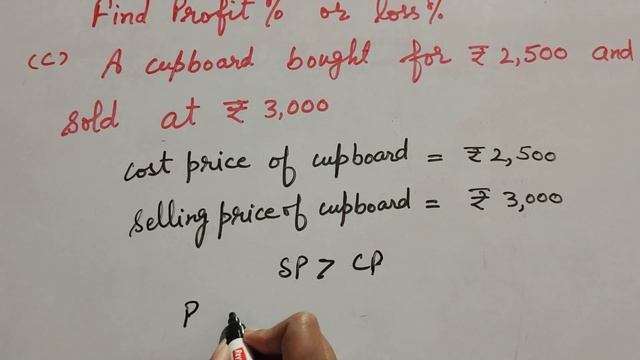 Find Profit % or loss %
(C) A cupboard bought for ₹ 2,500 and
sold at ₹ 3,000
cost price of cupboard = ₹ 2,500
selling price of cupboard = ₹ 3,000
SP > CP
P